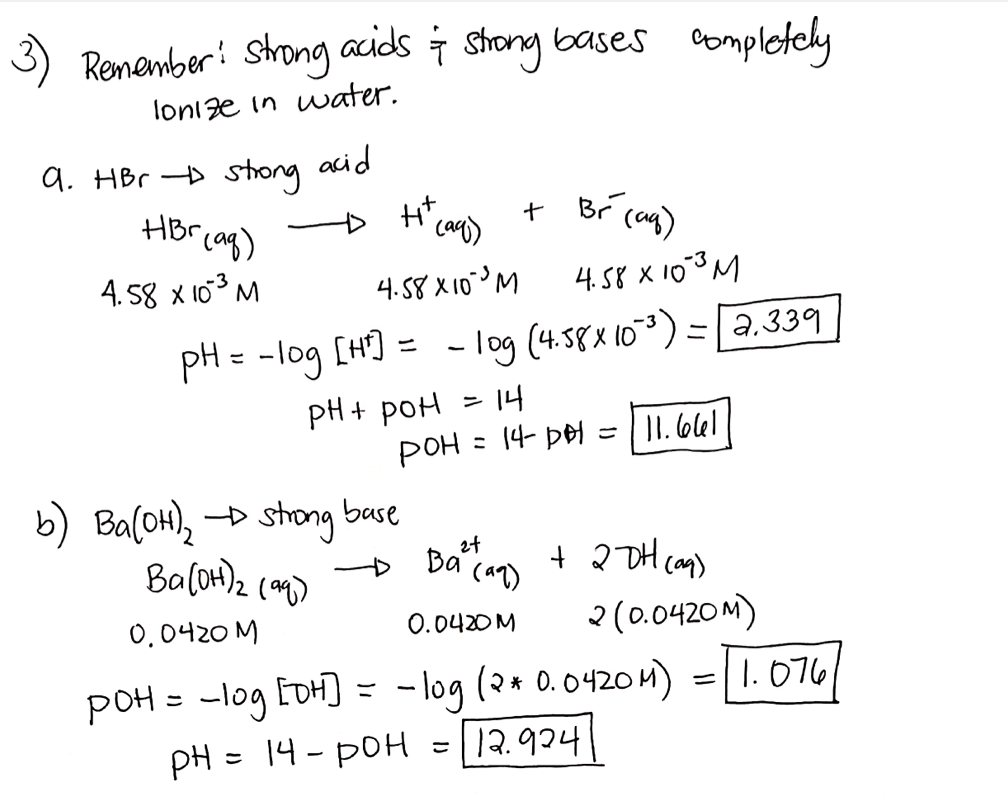 3) Remember! strong acids & strong bases completely
Ionize in water.
a. HBr → strong acid
HBr(aq) → H⁺(aq) + Br⁻(aq)
4.58 x 10⁻³ M 4.58 x 10⁻³ M 4.58 x 10⁻³ M
pH = -log [H⁺] = - log (4.58 x 10⁻³) = 2.339
pH + pOH = 14
pOH = 14 - pH = 11.661
b) Ba(OH)₂ → strong base
Ba(OH)₂ (aq) → Ba²⁺(aq) + 2 ⁻OH (aq)
0.0420 M 0.0420 M 2 (0.0420 M)
pOH = -log [⁻OH] = - log (2 * 0.0420 M) = 1.076
pH = 14 - pOH = 12.924